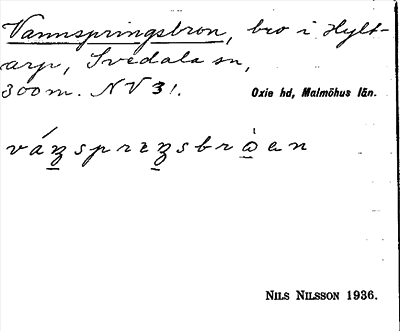 Vannspringsbron, bro i Hylt-
arp, Svedala sn,
300 m. NV 31. Oxie hd, Malmöhus län.
NILS NILSSON 1936.